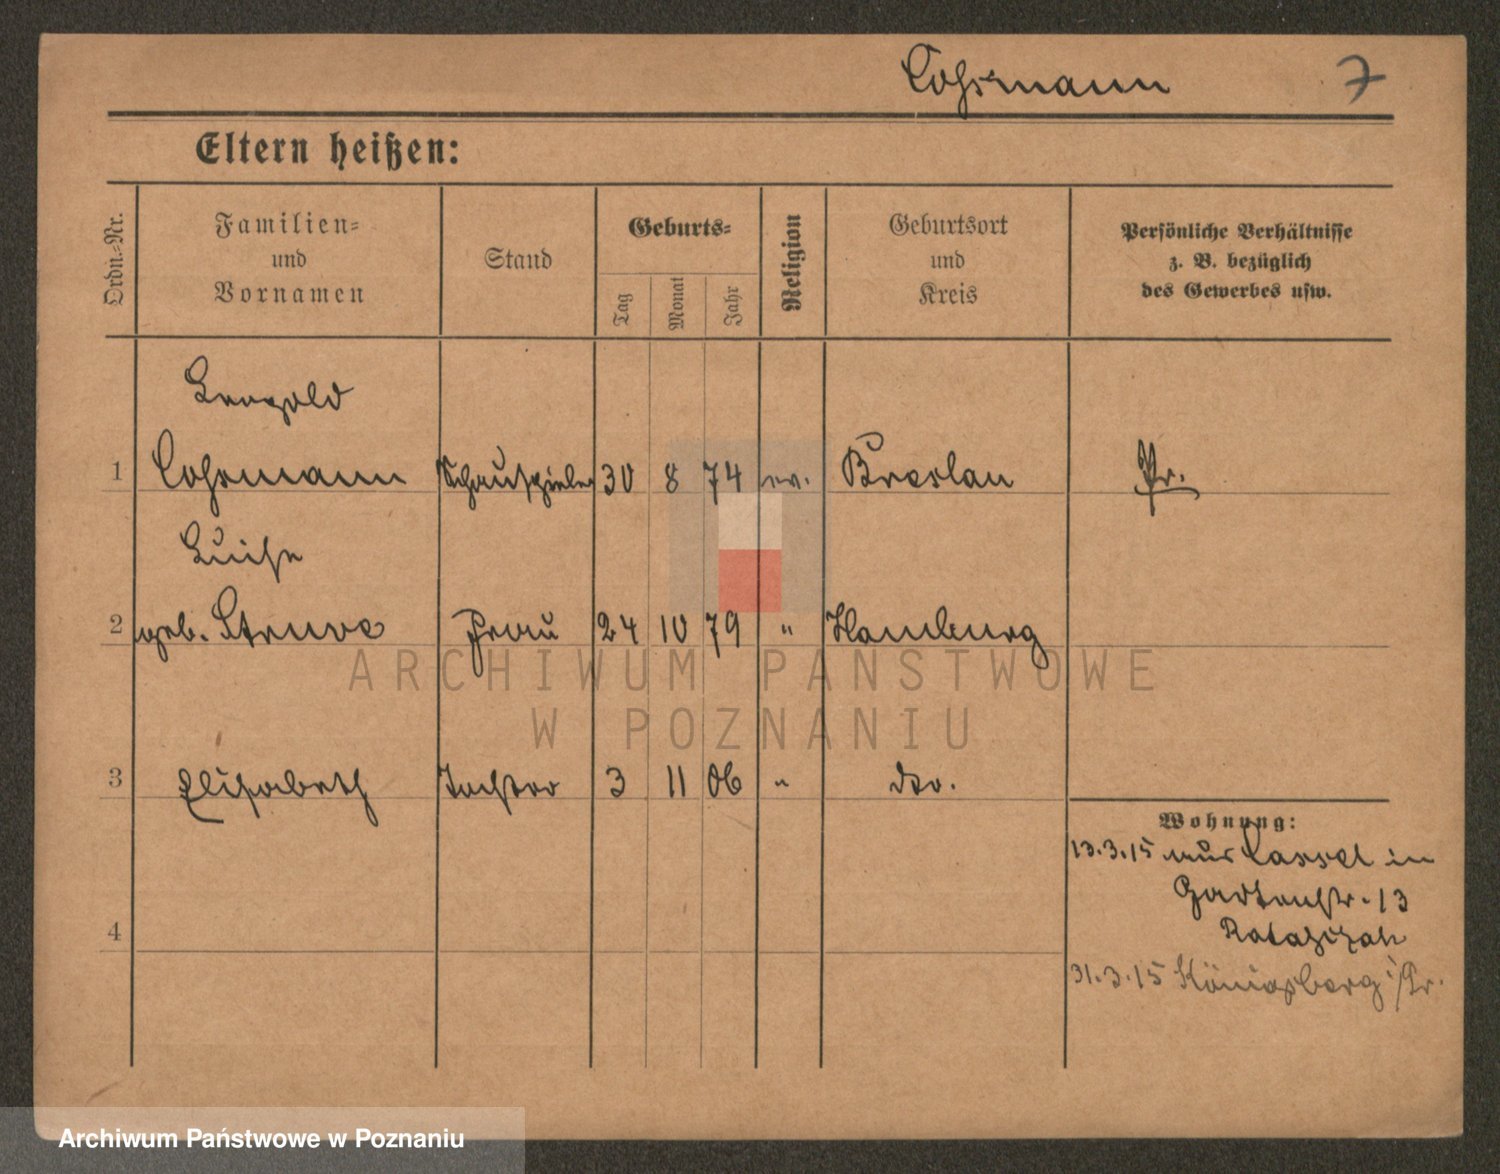 Cohrmann 7
Eltern heißen:
Ordn.-Nr.
Familien-
und
Vornamen
Stand
Geburts-
Tag
Monat
Jahr
Religion
Geburtsort
und
Kreis
Persönliche Verhältnisse
z. B. bezüglich
des Gewerbes usw.
Leopold
1 Cohrmann Schauspieler 30 8 74 ev. Breslau Pr.
Luise
2 geb. Struve Frau 24 10 79 " Hamburg
ARCHIWUM PAŃSTWOWE
W POZNANIU
3 Elisabeth Tochter 3 11 06 " do.
Wohnung:
13.3.15 aus Cassel in
Gartenstr. 13
4
31.3.15 Königsberg i/Pr.
Archiwum Państwowe w Poznaniu